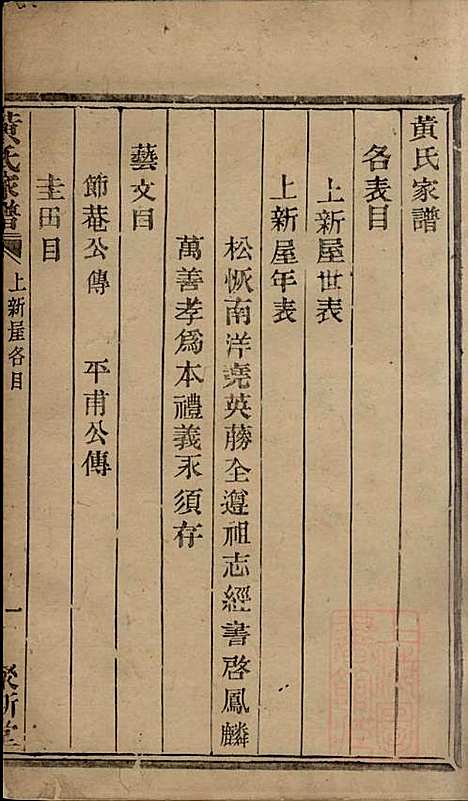 黃氏家譜
各表目
上新屋世表
上新屋年表
松恢南洋堯英藤全遵祖志經書啓鳳麟
萬善孝爲本禮義永須存
藝文目
節菴公傳 平甫公傳
圭田目
黃氏家譜 上新屋各目 一